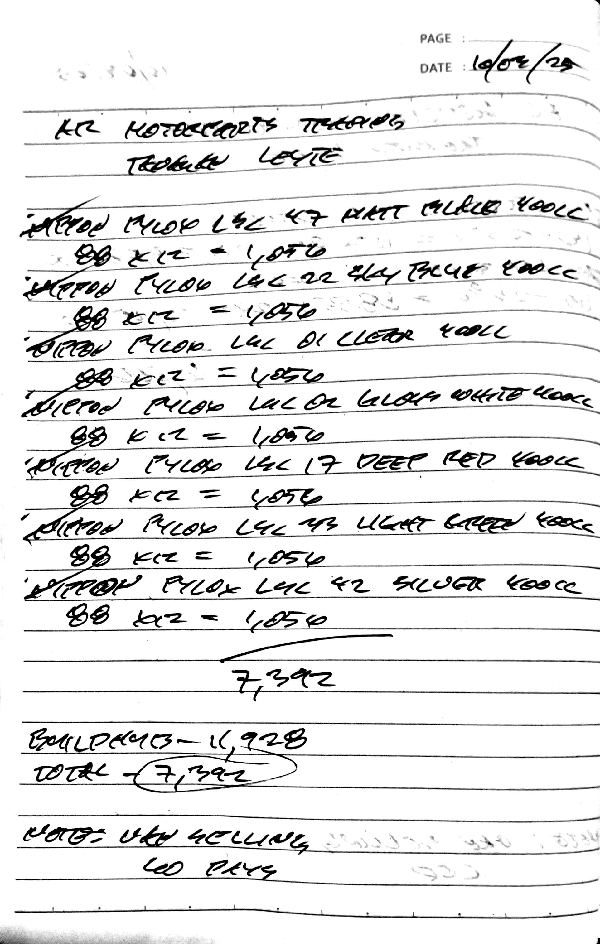 PAGE :
DATE : 10/09/25
MOTORPARTS TRADING
LEYTE
NIPPON PYLOX LAC 47 MATT BLACK 400CC
88 x 12 = 1,056
NIPPON PYLOX LAC 22 SKY BLUE 400CC
88 x 12 = 1,056
NIPPON PYLOX LAC 01 CLEAR 400CC
88 x 12 = 1,056
NIPPON PYLOX LAC 02 GLOSS WHITE 400CC
88 x 12 = 1,056
NIPPON PYLOX LAC 17 DEEP RED 400CC
88 x 12 = 1,056
NIPPON PYLOX LAC 43 LIGHT GREEN 400CC
88 x 12 = 1,056
NIPPON PYLOX LAC 42 SILVER 400CC
88 x 12 = 1,056
7,392
- 11,928
TOTAL - 7,392
NOTE: VAN SELLING
60 DAYS